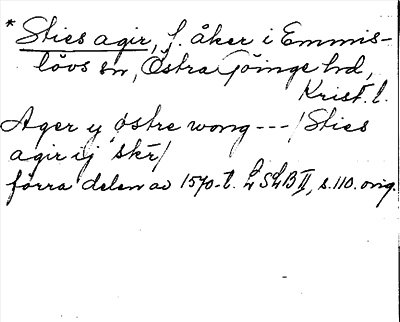 * Sties agir, f. åker i Emmis-
lövs sn, Östra Göinge hd,
Krist. l.
Ager y østre wong --- / Sties
agir ij skr /
förra delen av 1570-t. LSLB II, s. 110. orig.